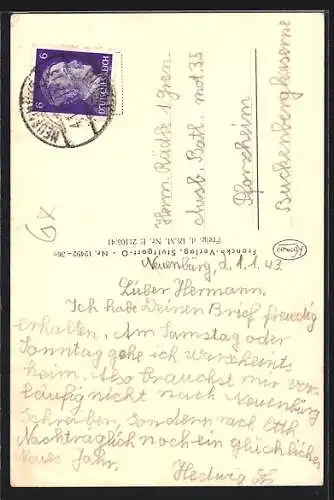 NEUEN
6 DEUTSCHES REICH 6
6x
Herrn Rüdk 1 Gren.
Ausb. Batl. mot. 35
Pforzheim
Buckenbergkaserne
Kosmos
Franckh-Verlag, Stuttgart-O - Nr. 12492-36
Freig. d. RLM. Nr.
Neuenbürg, d. 1.1.43.
Lieber Hermann.
Ich habe Deinen Brief freudig
erhalten. Am Samstag oder
Sonntag gehe ich warscheints
heim. Also brauchst mir vor-
läufig nicht nach Neuenbürg
schreiben, sondern nach
Nachtraglich noch ein glückliches
Neues Jahr.
Hedwig